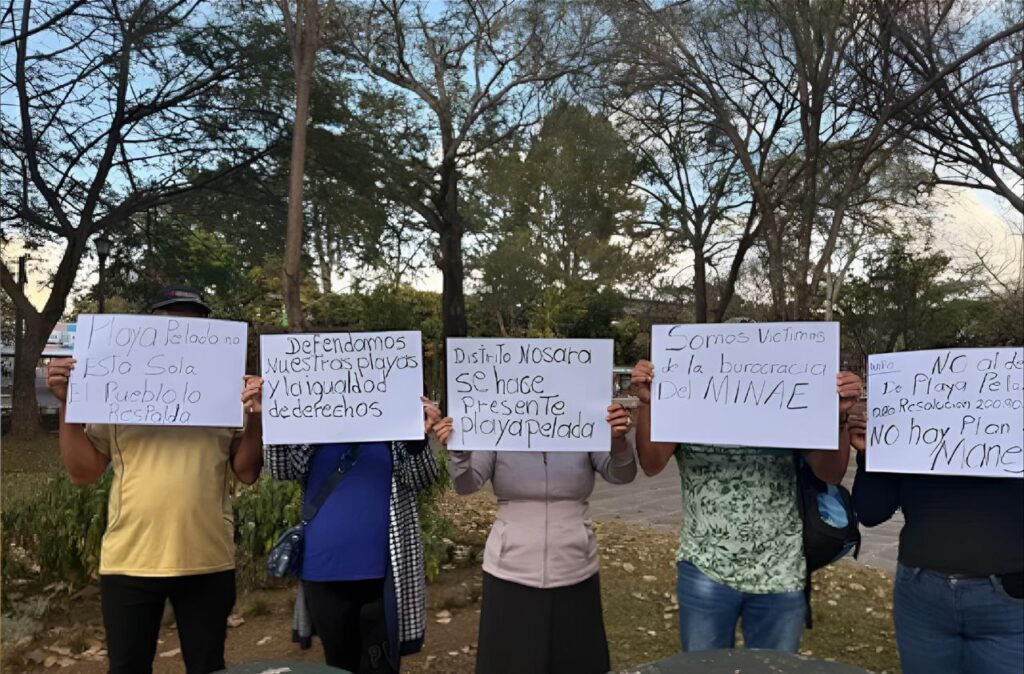 Playa Pelada no
Está Sola
El Pueblo lo
Respalda
Defendamos
Nuestras playas
y la igualdad
de derechos
Distrito Nosara
Se hace
Presente
Playa pelada
Somos Victimas
de la burocracia
Del MINAE
NO al de
De Playa Pela
Resolución
NO hay Plan
Mane